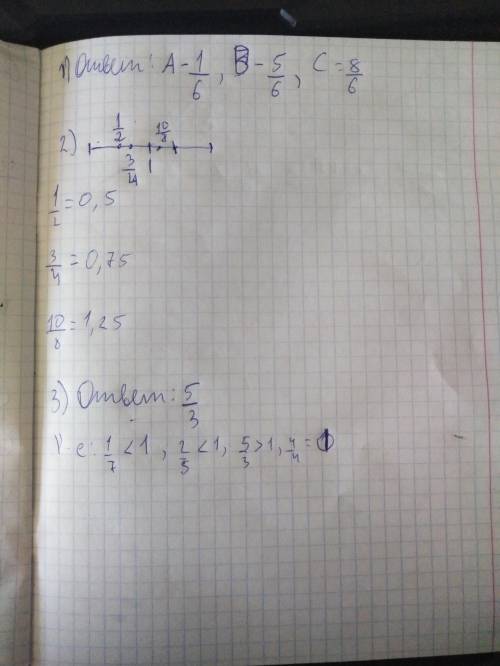 1) Ответ: A - 1/6, B - 5/6, C = 8/6
2) 1/2 10/8
3/4 1
1/2 = 0,5
3/4 = 0,75
10/8 = 1,25
3) Ответ: 5/3
1/7 < 1, 2/3 < 1, 5/3 > 1, 4/4 =